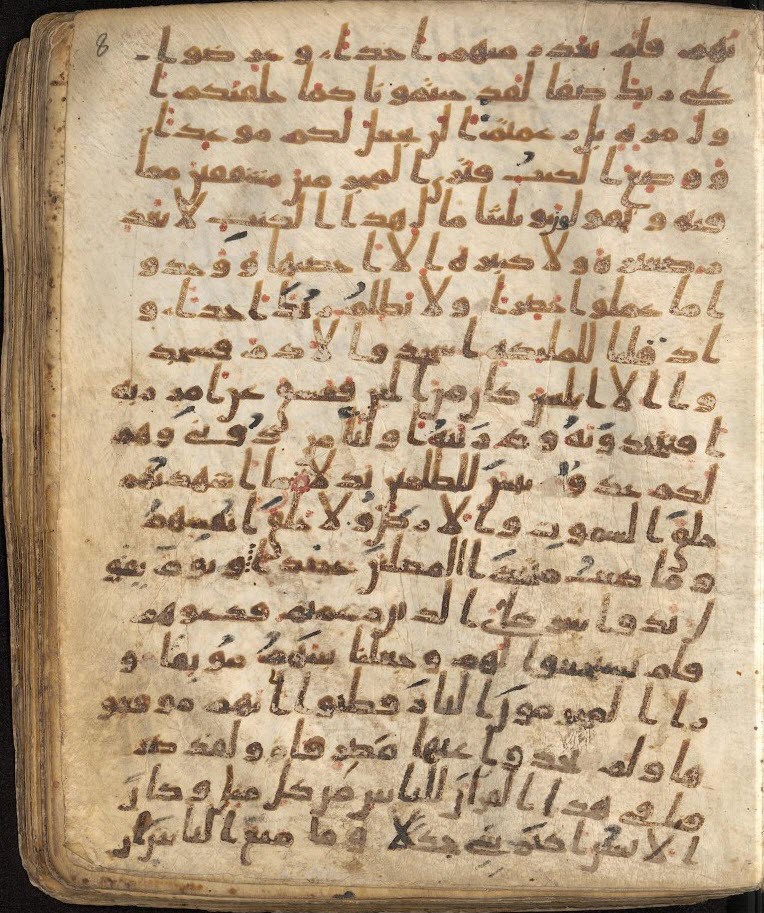 8
نهم فلم نغدر منهم احدا وعرضوا
على ربك صفا لقد جئتمونا كما خلقنكم ا
ول مرة بل زعمتم الن نجعل لكم موعدا
ووضع الكتب فترى المجرمين مشفقين مما
فيه ويقولون يويلتنا مال هدا الكتب لا يغد
ر صغيرة ولا كبيرة الا احصيها ووجدو
ا ما عملوا حضرا ولا يظلم ربك احدا و
اذ قلنا للمليكة اسجدوا لادم فسجد
وا الا ابليس كان من الجن ففسق عن امر ربه
افتتخذونه وذريته اوليا من دوني وهم
لكم عدو بئس للظلمين بدلا ما اشهدتهم
خلق السموت والارض ولا خلق انفسهم
وما كنت متخذ المضلين عضدا ويوم يقو
ل نادوا شركاي الذين زعمتم فدعوهم
فلم يستجيبوا لهم وجعلنا بينهم موبقا و
را المجرمون النار فظنوا انهم موقعو
ها ولم يجدوا عنها مصرفا ولقد صر
فنا في هذا القران للناس من كل مثل وكان
الانسن اكثر شي جدلا وما منع الناس ان